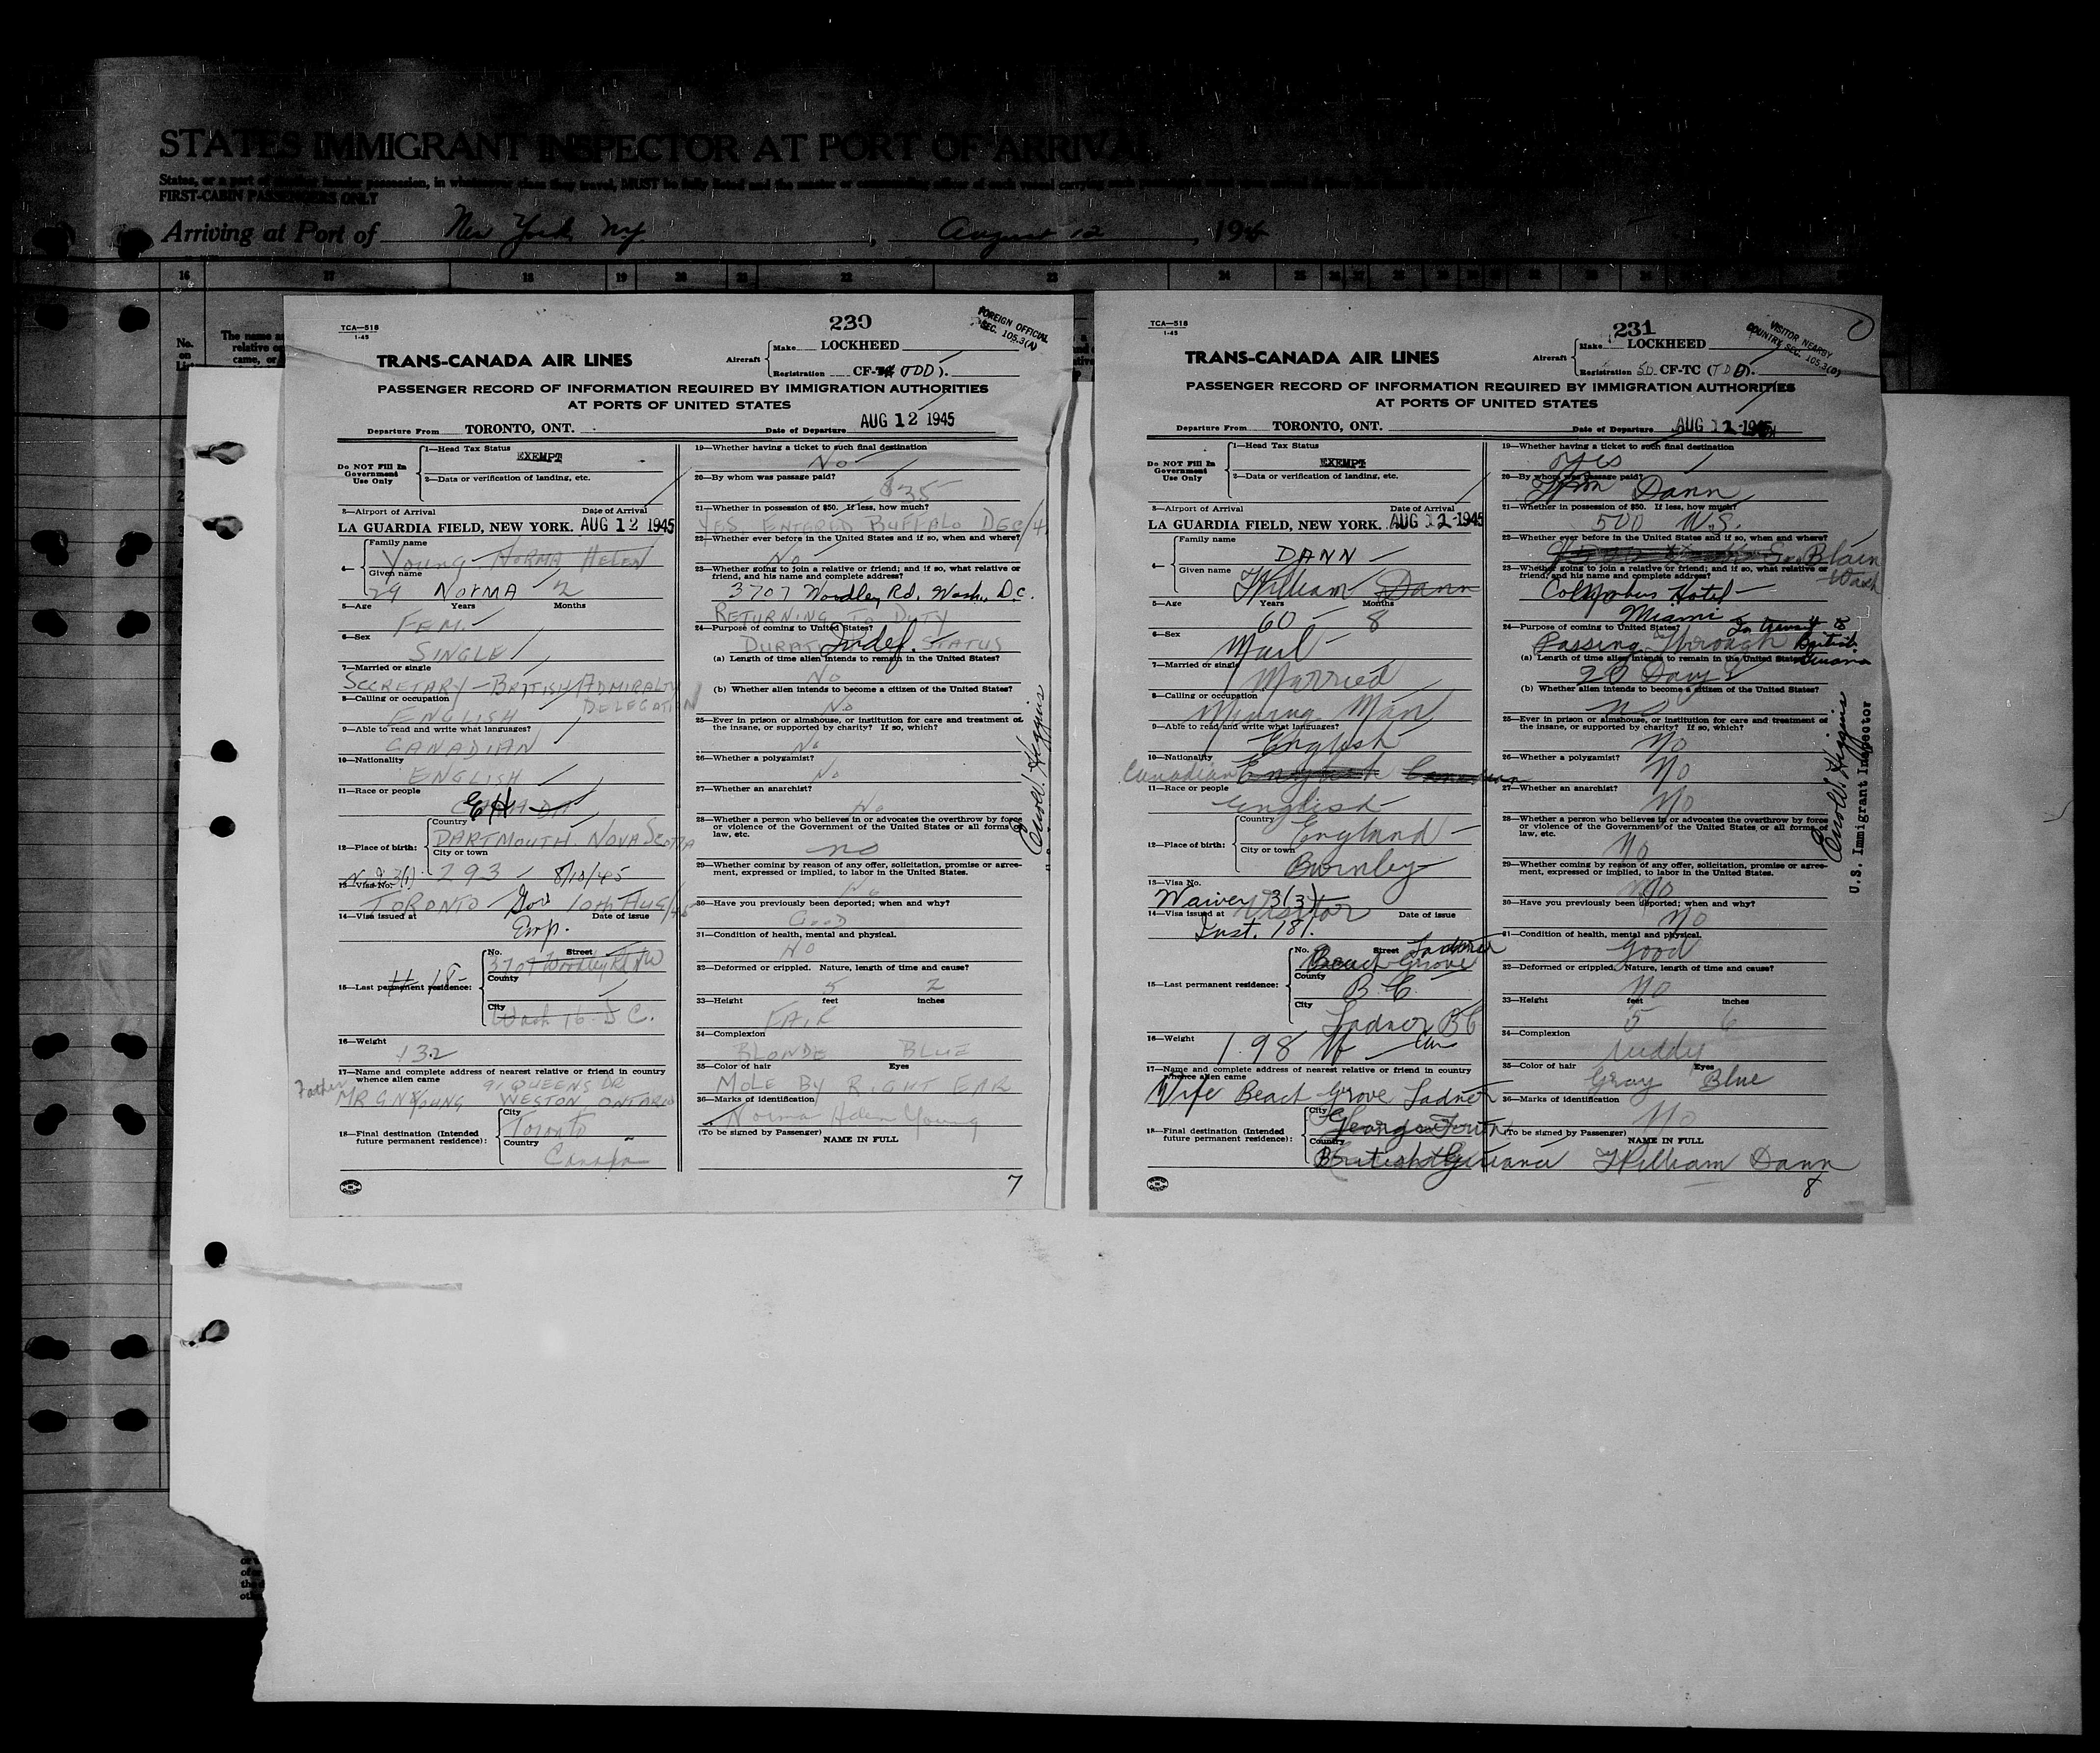 STATES IMMIGRANT INSPECTOR AT PORT OF ARRIVAL
FIRST-CABIN PASSENGERS ONLY
Arriving at Port of New York, NY, August 12, 194
16 17 18 19 20 21 22 23 24 25
No. on List
TCA—518
1-45
230
FOREIGN OFFICIAL
SEC. 105.3(A)
TRANS-CANADA AIR LINES
Aircraft
Make LOCKHEED
Registration CF- (TDD).
PASSENGER RECORD OF INFORMATION REQUIRED BY IMMIGRATION AUTHORITIES
AT PORTS OF UNITED STATES
Departure From TORONTO, ONT.
Date of Departure AUG 12 1945
Do NOT Fill In Government Use Only
1—Head Tax Status
EXEMPT
2—Data or verification of landing, etc.
3—Airport of Arrival
Date of Arrival
LA GUARDIA FIELD, NEW YORK. AUG 12 1945
4—
Family name
Young NORMA HELEN
Given name
29 NORMA 2
5—Age Years Months
FEM.
6—Sex
SINGLE
7—Married or single
SECRETARY - BRITISH ADMIRALTY DELEGATION
8—Calling or occupation
ENGLISH
9—Able to read and write what languages?
CANADIAN
10—Nationality
ENGLISH
11—Race or people
CANADA
12—Place of birth:
Country
DARTMOUTH, NOVA SCOTIA
City or town
3(1) 293 - 8/10/45
13—Visa No.
TORONTO Gov 10th Aug/45
14—Visa issued at Date of issue
Emp.
15—Last permanent residence:
No. Street
3707 Woodley Rd NW
County
City
Wash 16. D C.
16—Weight
132
17—Name and complete address of nearest relative or friend in country whence alien came
Father
MR G N YOUNG
91 QUEENS DR
WESTON ONTARIO
18—Final destination (Intended future permanent residence):
City
Toronto
Country
Canada
19—Whether having a ticket to such final destination
No
20—By whom was passage paid?
$35
21—Whether in possession of $50. If less, how much?
YES ENTERED BUFFALO DEC/4
22—Whether ever before in the United States and if so, when and where?
No
23—Whether going to join a relative or friend; and if so, what relative or friend, and his name and complete address?
3707 Woodley Rd. Wash., D.C.
RETURNING TO DUTY
24—Purpose of coming to United States?
Indef. STATUS
(a) Length of time alien intends to remain in the United States?
No
(b) Whether alien intends to become a citizen of the United States?
No
25—Ever in prison or almshouse, or institution for care and treatment of the insane, or supported by charity? If so, which?
No
26—Whether a polygamist?
No
27—Whether an anarchist?
No
28—Whether a person who believes in or advocates the overthrow by force or violence of the Government of the United States or all forms of law, etc.
no
29—Whether coming by reason of any offer, solicitation, promise or agreement, expressed or implied, to labor in the United States.
No
30—Have you previously been deported; when and why?
Good
31—Condition of health, mental and physical.
No
32—Deformed or crippled. Nature, length of time and cause?
5 2
33—Height feet inches
FAIR
34—Complexion
BLONDE BLUE
35—Color of hair Eyes
MOLE BY RIGHT EAR
36—Marks of identification
Norma Helen Young
(To be signed by Passenger) NAME IN FULL
7
TCA—518
1-45
231
VISITOR NEARBY
COUNTRY SEC. 105.3(D)
TRANS-CANADA AIR LINES
Aircraft
Make LOCKHEED
Registration CF-TC (TDD).
PASSENGER RECORD OF INFORMATION REQUIRED BY IMMIGRATION AUTHORITIES
AT PORTS OF UNITED STATES
Departure From TORONTO, ONT.
Date of Departure AUG 12 1945
Do NOT Fill In Government Use Only
1—Head Tax Status
EXEMPT
2—Data or verification of landing, etc.
3—Airport of Arrival
Date of Arrival
LA GUARDIA FIELD, NEW YORK. AUG 12 1945
4—
Family name
DANN
Given name
William Dann
5—Age Years Months
60 - 8
6—Sex
Mail
7—Married or single
Married
8—Calling or occupation
Mining Man
9—Able to read and write what languages?
English
10—Nationality
Canadian English Canadian
11—Race or people
English
12—Place of birth:
Country
England
City or town
Burnley
13—Visa No.
Waiver 3(3)
14—Visa issued at Visitor Date of issue
Inst. 181.
15—Last permanent residence:
No. Street
Beach Grove Ladner
County
B.C.
City
Ladner BC
16—Weight
198
17—Name and complete address of nearest relative or friend in country whence alien came
Wife Beach Grove Ladner
18—Final destination (Intended future permanent residence):
City
George Town
Country
British Guiana
19—Whether having a ticket to such final destination
Yes
20—By whom was passage paid?
Wm Dann
21—Whether in possession of $50. If less, how much?
500 U.S.
22—Whether ever before in the United States and if so, when and where?
Blain Wash
23—Whether going to join a relative or friend; and if so, what relative or friend, and his name and complete address?
Columbus Hotel
Miami
24—Purpose of coming to United States?
In transit to British Guiana
Passing Through
(a) Length of time alien intends to remain in the United States?
20 Days
(b) Whether alien intends to become a citizen of the United States?
no
25—Ever in prison or almshouse, or institution for care and treatment of the insane, or supported by charity? If so, which?
No
26—Whether a polygamist?
No
27—Whether an anarchist?
No
28—Whether a person who believes in or advocates the overthrow by force or violence of the Government of the United States or all forms of law, etc.
No
29—Whether coming by reason of any offer, solicitation, promise or agreement, expressed or implied, to labor in the United States.
No
30—Have you previously been deported; when and why?
No
31—Condition of health, mental and physical.
Good
32—Deformed or crippled. Nature, length of time and cause?
No
33—Height feet inches
5 6
34—Complexion
ruddy
35—Color of hair Eyes
Gray Blue
36—Marks of identification
No
(To be signed by Passenger) NAME IN FULL
William Dann
8
U.S. Immigrant Inspector